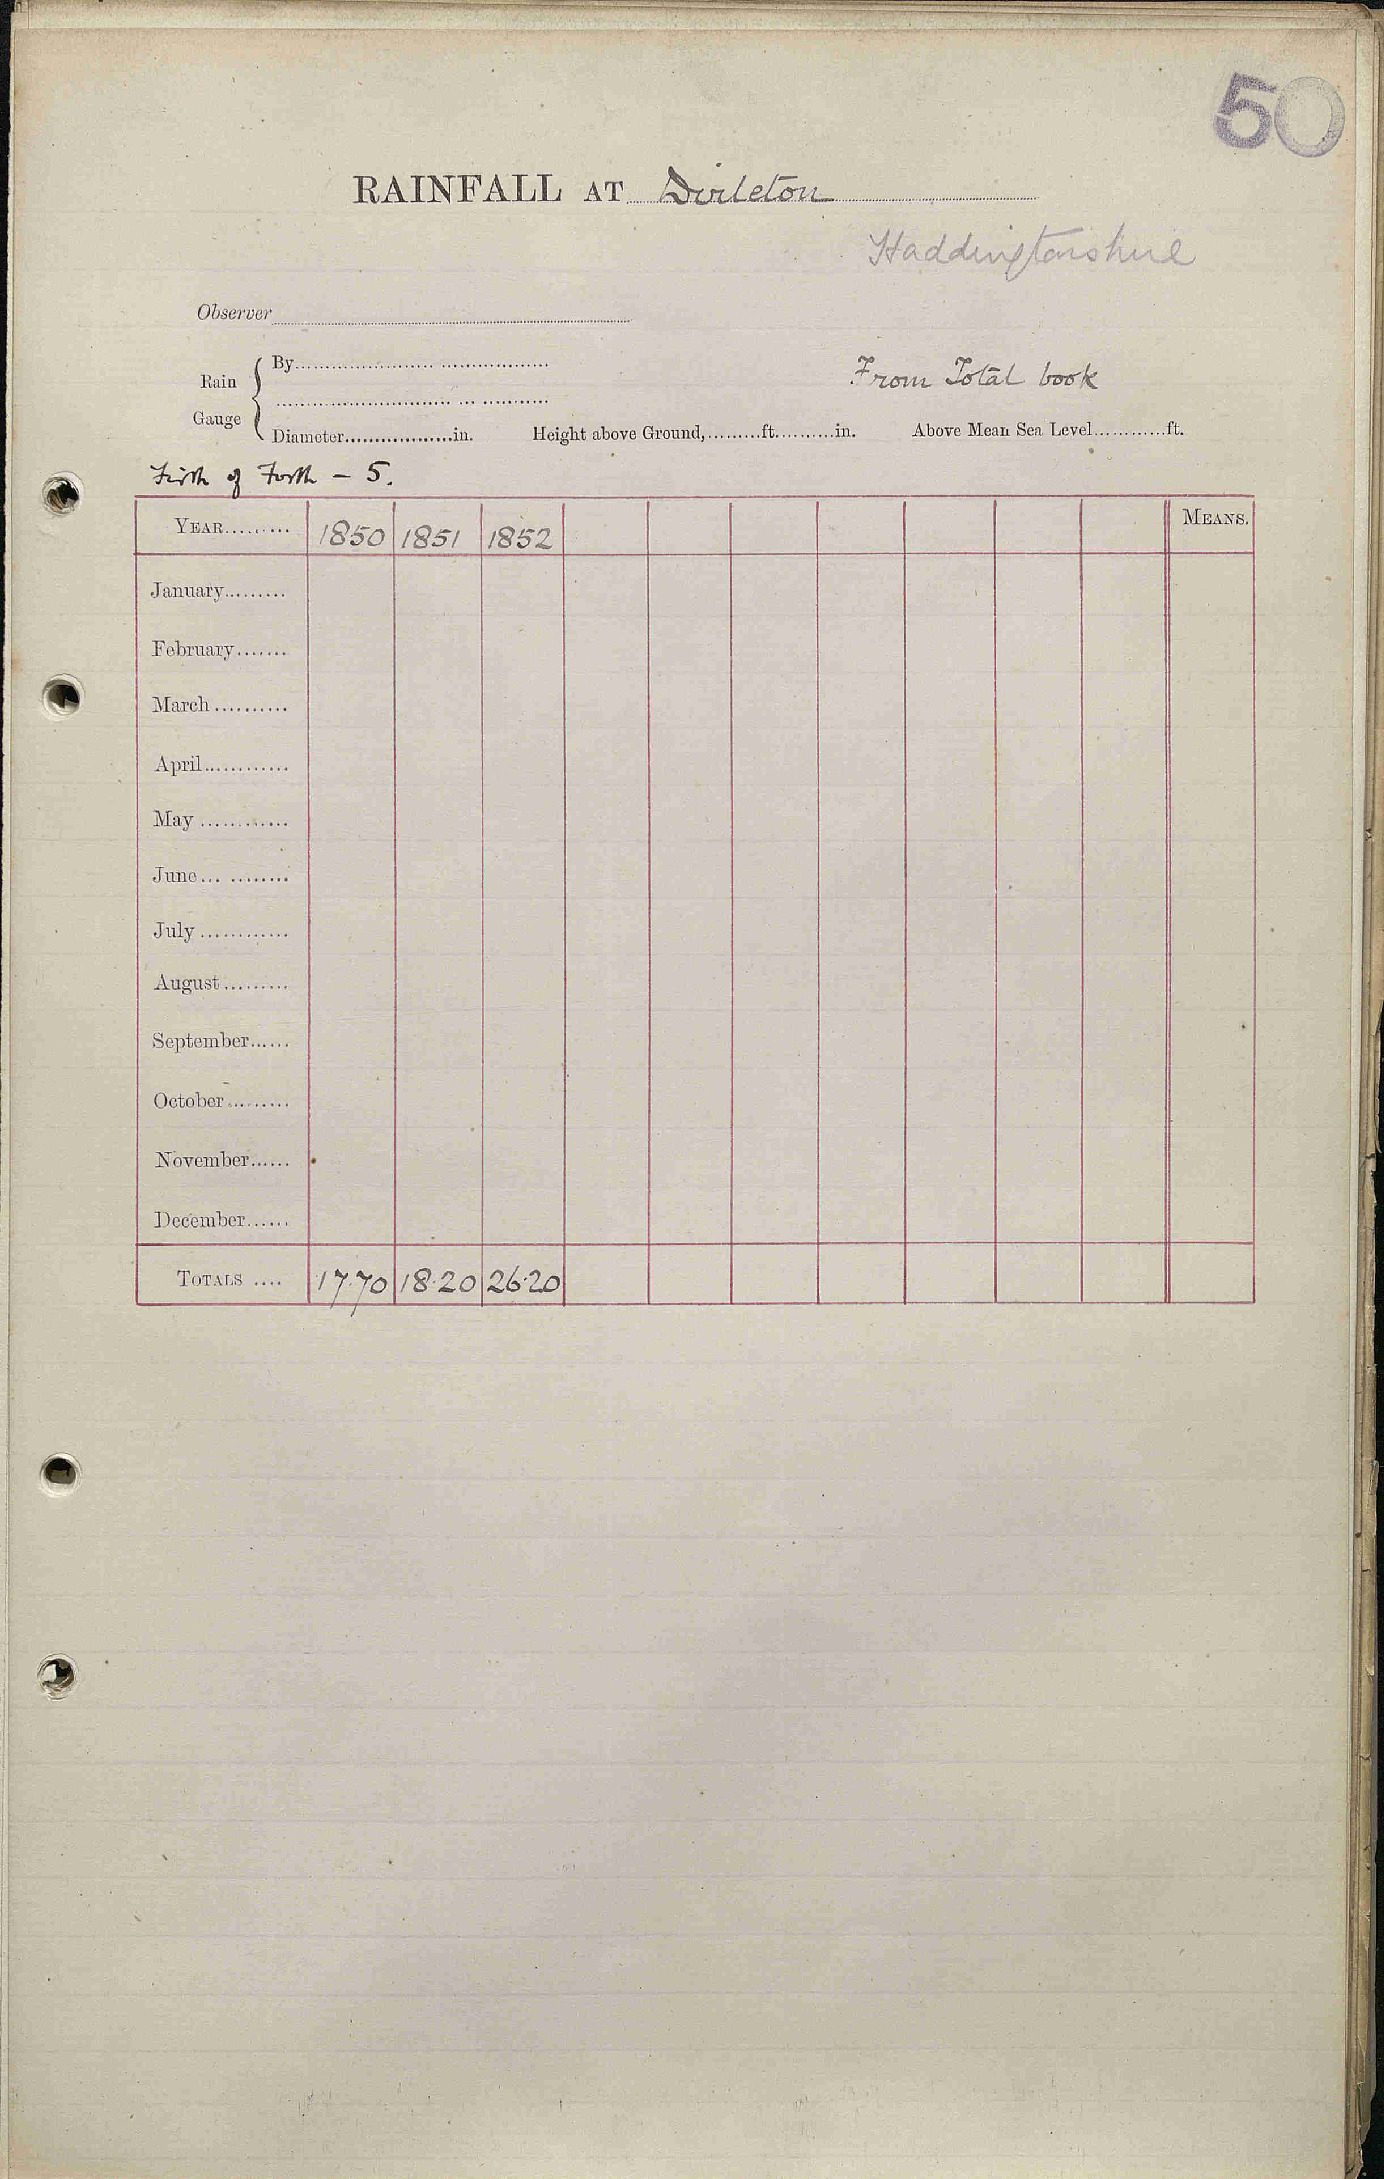 50
RAINFALL AT Dirleton
Haddingtonshire
Observer
Rain Gauge
By
From Total book
Diameter in. Height above Ground, ft. in. Above Mean Sea Level ft.
Firth of Forth - 5.
YEAR 1850 1851 1852 MEANS.
January
February
March
April
May
June
July
August
September
October
November
December
TOTALS 17.70 18.20 26.20